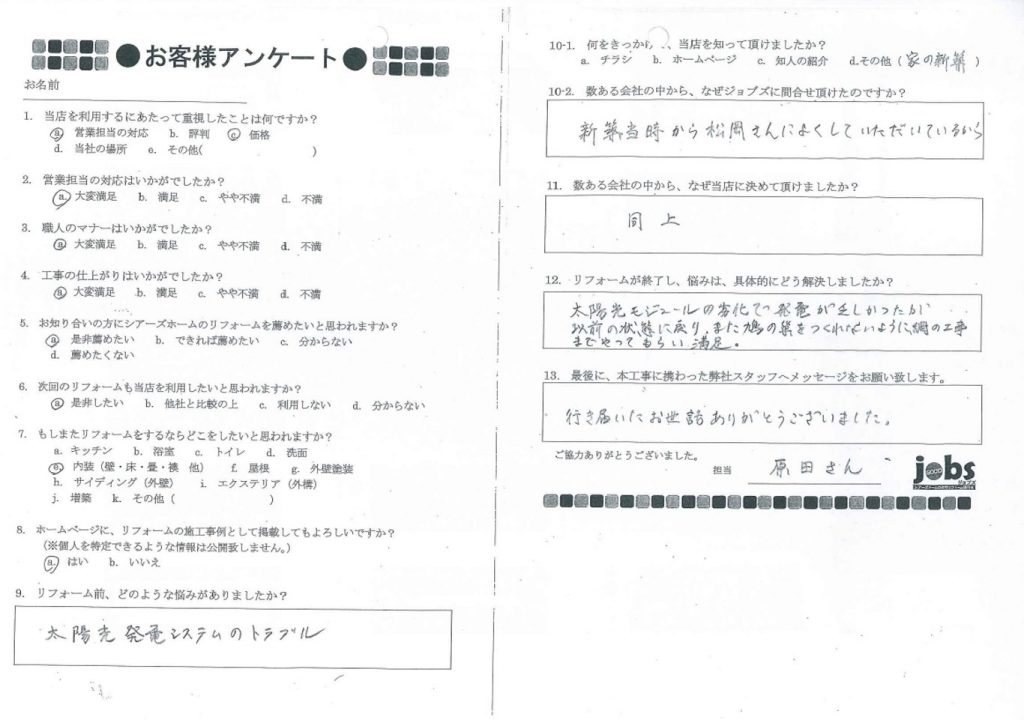 ●お客様アンケート●
お名前
1. 当店を利用するにあたって重視したことは何ですか？
a. 営業担当の対応 b. 評判 c. 価格
d. 当社の場所 e. その他( )
2. 営業担当の対応はいかがでしたか？
a. 大変満足 b. 満足 c. やや不満 d. 不満
3. 職人のマナーはいかがでしたか？
a. 大変満足 b. 満足 c. やや不満 d. 不満
4. 工事の仕上がりはいかがでしたか？
a. 大変満足 b. 満足 c. やや不満 d. 不満
5. お知り合いの方にシアーズホームのリフォームを薦めたいと思われますか？
a. 是非薦めたい b. できれば薦めたい c. 分からない
d. 薦めたくない
6. 次回のリフォームも当店を利用したいと思われますか？
a. 是非したい b. 他社と比較の上 c. 利用しない d. 分からない
7. もしまたリフォームをするならどこをしたいと思われますか？
a. キッチン b. 浴室 c. トイレ d. 洗面
e. 内装（壁・床・畳・襖 他） f. 屋根 g. 外壁塗装
h. サイディング（外壁） i. エクステリア（外構）
j. 増築 k. その他（ ）
8. ホームページに、リフォームの施工事例として掲載してもよろしいですか？
（※個人を特定できるような情報は公開致しません。）
a. はい b. いいえ
9. リフォーム前、どのような悩みがありましたか？
太陽光発電システムのトラブル
10-1. 何をきっか、当店を知って頂けましたか？
a. チラシ b. ホームページ c. 知人の紹介 d.その他（家の新築）
10-2. 数ある会社の中から、なぜジョブズに問合せ頂けたのですか？
新築当時から松岡さんによくしていただいているから
11. 数ある会社の中から、なぜ当店に決めて頂けましたか？
同上
12. リフォームが終了し、悩みは、具体的にどう解決しましたか？
太陽光モジュールの劣化で発電が乏しかったが
以前の状態に戻り、また鳩の巣をつくれないように網の工事
までやってもらい満足。
13. 最後に、本工事に携わった弊社スタッフへメッセージをお願い致します。
行き届いたお世話ありがとうございました。
ご協力ありがとうございました。
担当 原田さん
jobs
ジョブズ